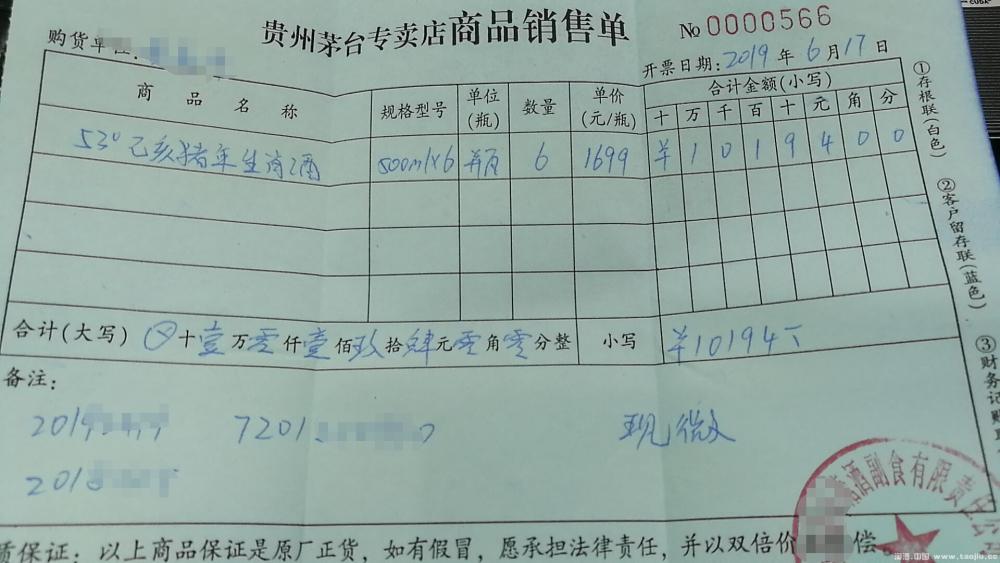 贵州茅台专卖店商品销售单 No 0000566
购货单位:
开票日期: 2019 年 6 月 17 日
商品名称 规格型号 单位(瓶) 数量 单价(元/瓶) 合计金额(小写)
十 万 千 百 十 元 角 分
53° 乙亥猪年生肖酒 500ml×6 瓶 6 1699 ¥ 1 0 1 9 4 0 0
合计(大写) ⊗ 十 壹 万 零 仟 壹 佰 玖 拾 肆 元 零 角 零 分整 小写 ¥10194
备注:
2019 7201 现 微
201
质保证: 以上商品保证是原厂正货, 如有假冒, 愿承担法律责任, 并以双倍价 偿。
①存根联(白色)
②客户留存联(蓝色)
③财务记账
酒副食有限责任公
www.taojiu.cc